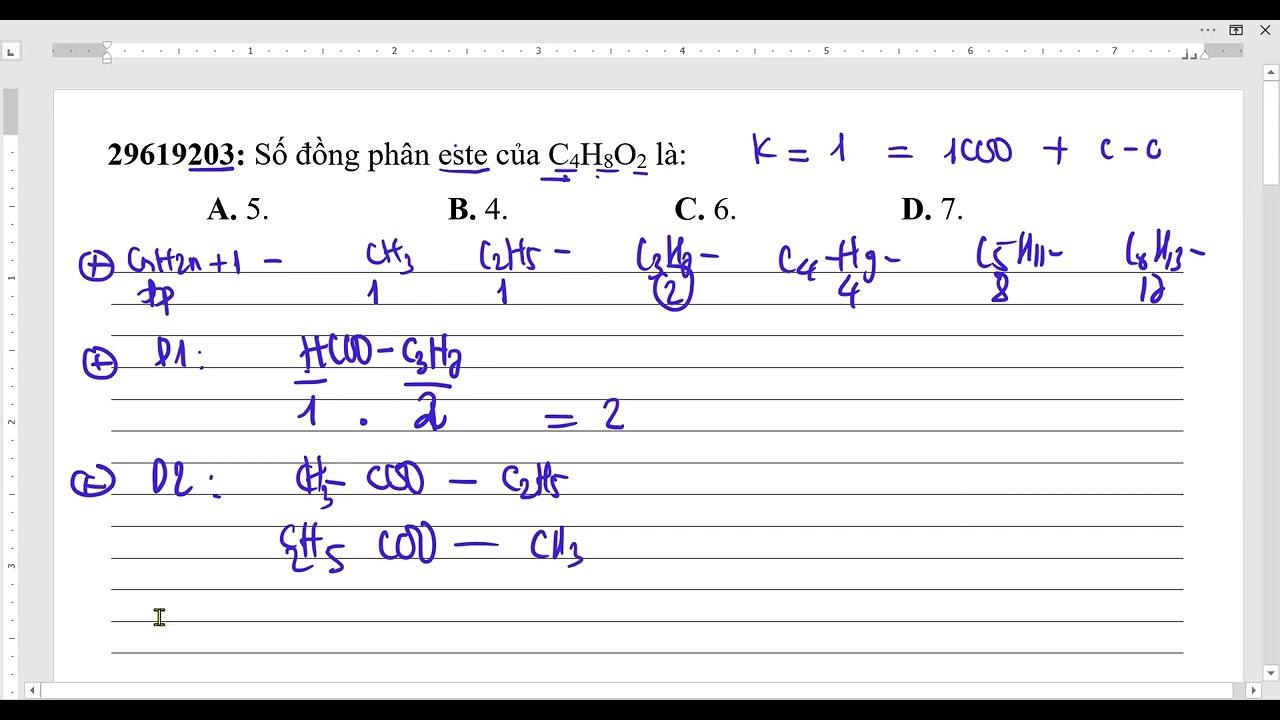 1 2 3 4 5 6 7
29619203: Số đồng phân este của C₄H₈O₂ là: K = 1 = 1COO + C-C
A. 5. B. 4. C. 6. D. 7.
⊕ CnH2n+1 - CH₃ C₂H₅ - C₃H₇ - C₄H₉ - C₅H₁₁- C₆H₁₃-
đp 1 1 ② 4 8 17
⊕ D1: HCOO-C₃H₇
1 . 2 = 2
D2: CH₃- COO - C₂H₅
C₂H₅ COO — CH₃
1
2
3